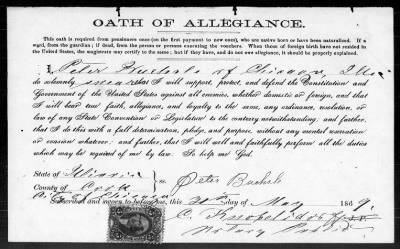 OATH OF ALLEGIANCE.
This oath is required from pensioners once (on the first payment to new ones), who are native born or have been naturalized. If a
ward, from the guardian; if dead, from the person or persons executing the vouchers. When those of foreign birth have not resided in
the United States, the magistrate may certify to the same; but if they have, and do not owe allegiance, it should be properly explained.
I, Peter of Chicago, Ills.
do solemnly swear that I will support, protect, and defend the Constitution and
Government of the United States against all enemies, whether domestic or foreign, and that
I will bear true faith, allegiance, and loyalty to the same, any ordinance, resolution, or
law of any State Convention or Legislature to the contrary notwithstanding; and further,
that I do this with a full determination, pledge, and purpose, without any mental reservation
or evasion whatever; and further, that I will well and faithfully perform all the duties
which may be required of me by law. So help me God.
State of Illinois
County of Cook
Peter
City of Chicago
Subscribed and sworn to before me, this day of May 186
C.
Notary Public